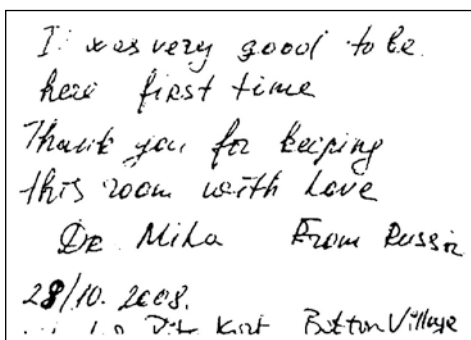 I was very good to be
here first time
Thank you for keeping
this room with love
DR Mila From Russia
28/10.2008.
Botton Village